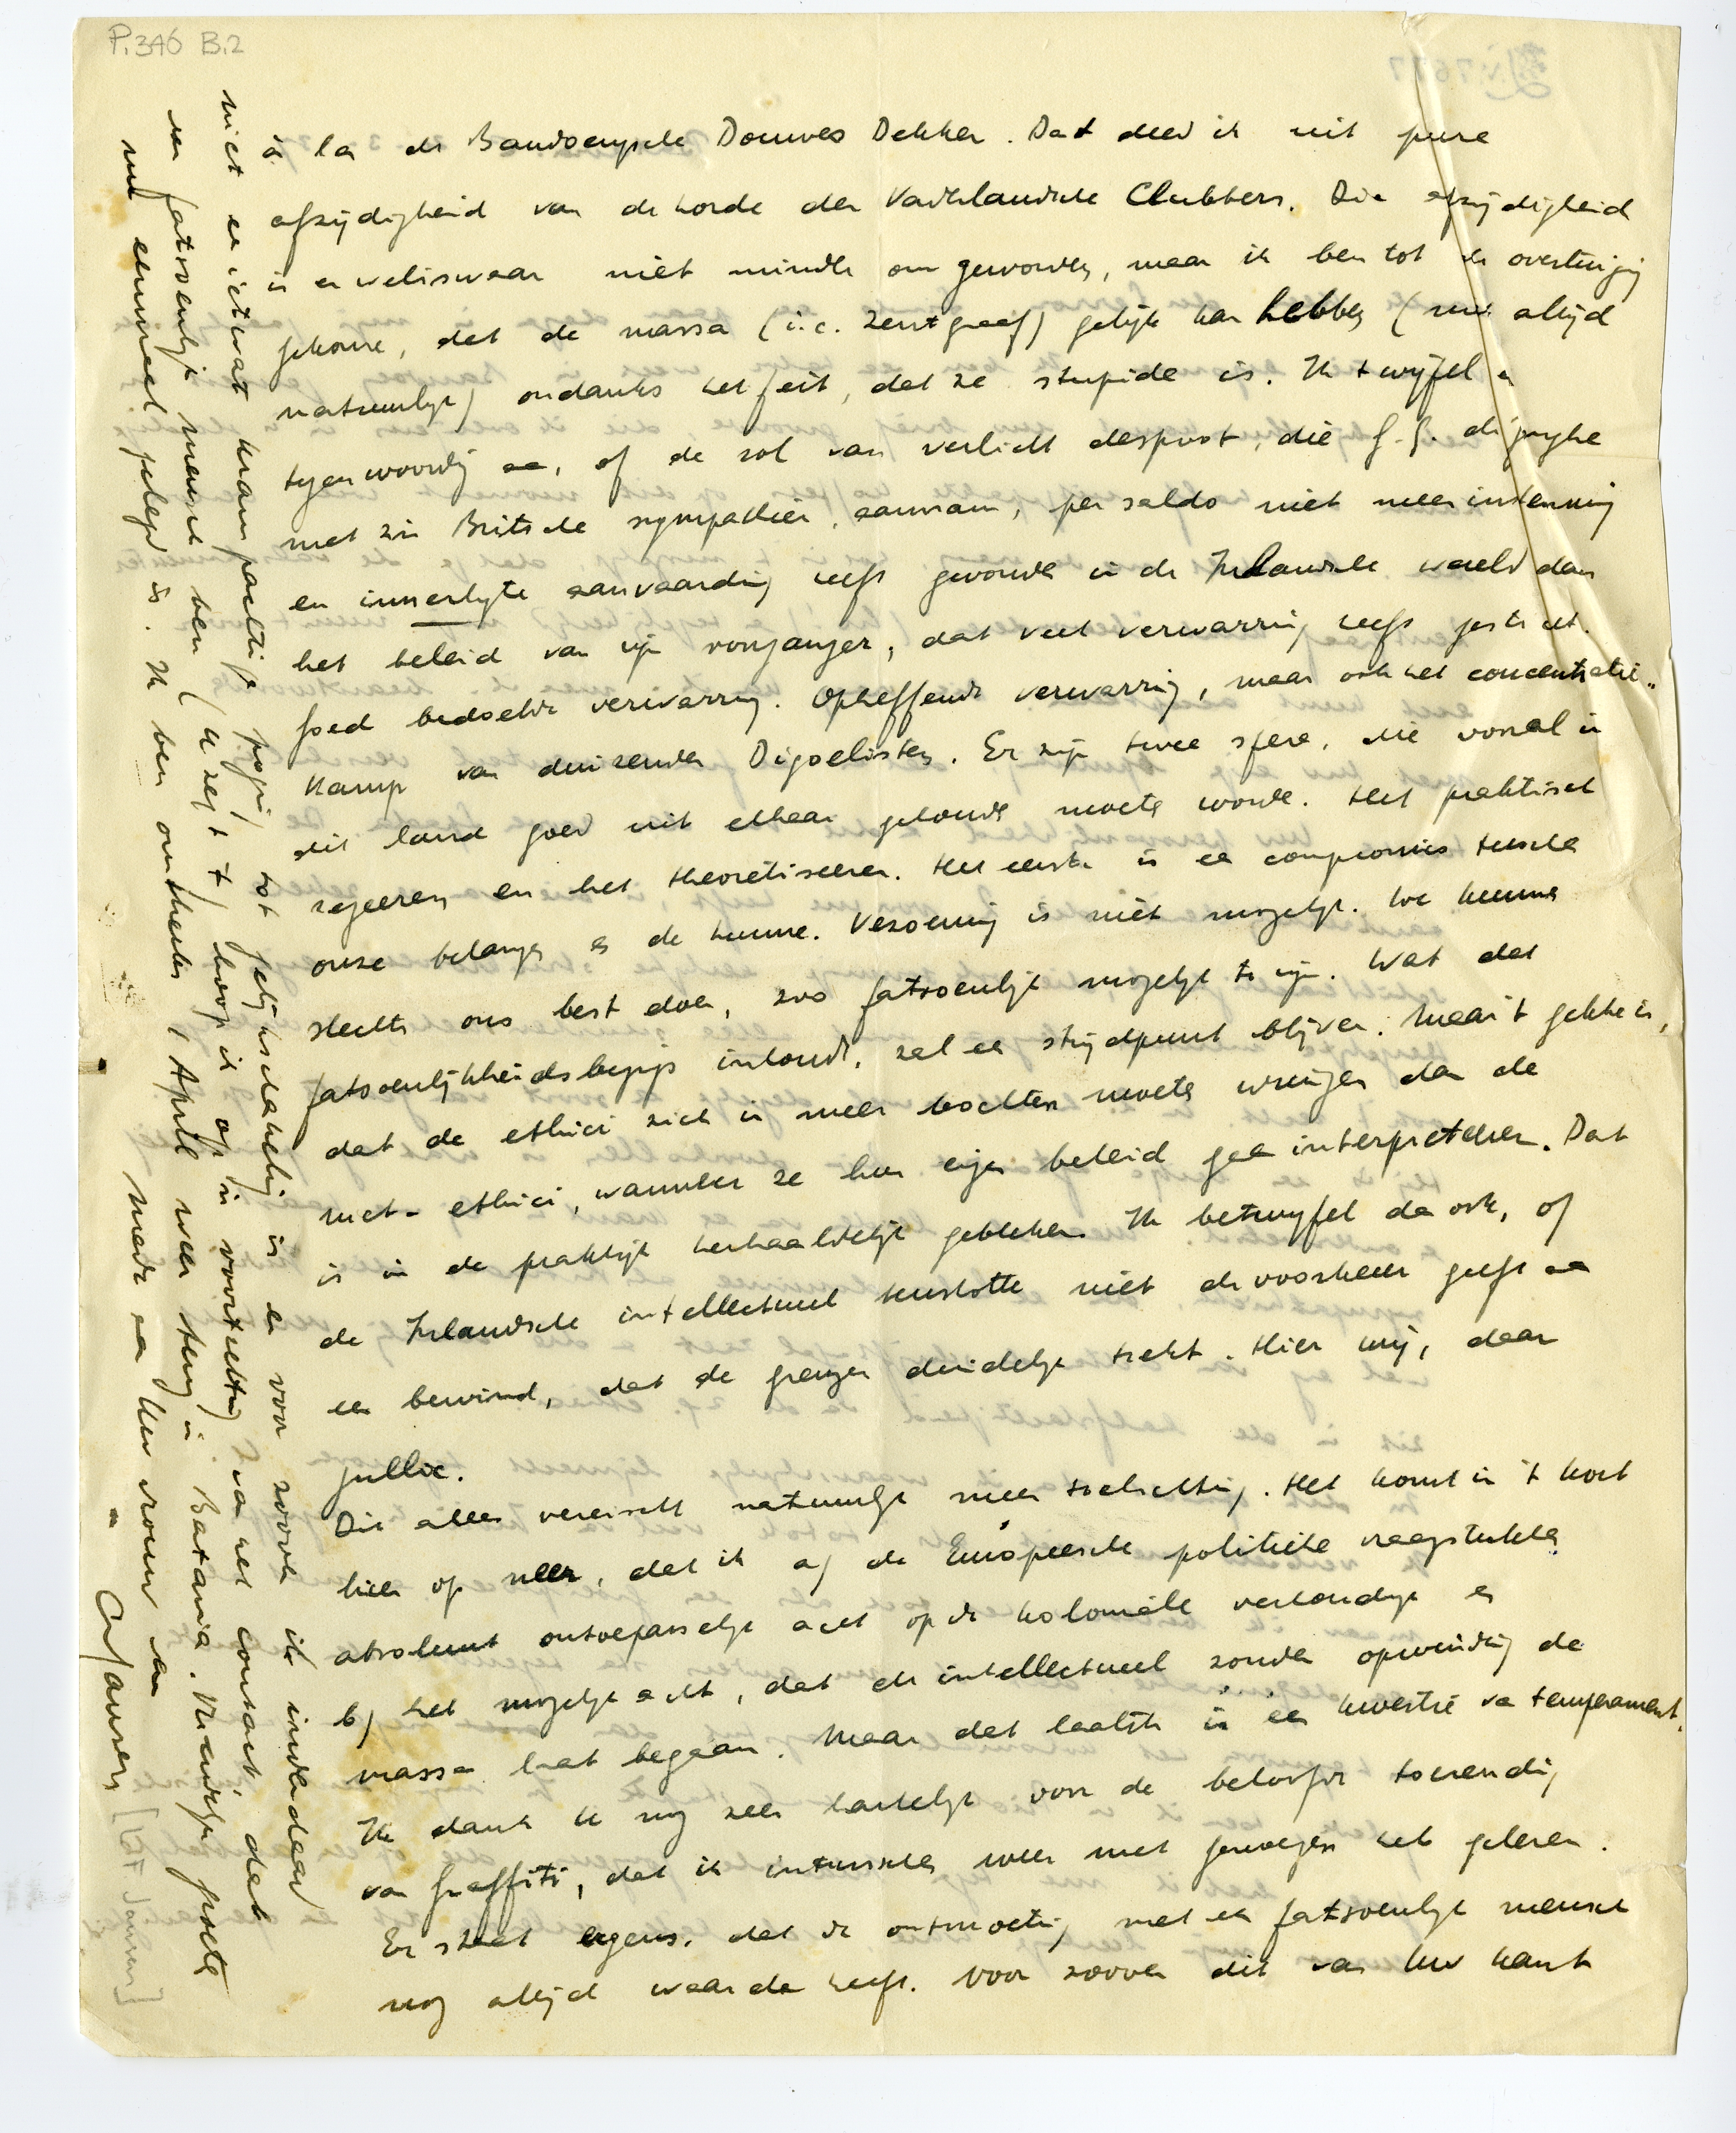 P.346 B.2
à la de Bandoengsche Douwes Dekker. Dat deed ik uit pure
afzijdigheid van de horde der Vaderlandsche Clubbers. Die afzijdigheid
is er weliswaar niet minder om geworden, maar ik ben tot de overtuiging
gekomen, dat de massa (i.c. Zentgraaf) gelijk kan hebben (niet altijd
natuurlijk) ondanks het feit, dat ze stupide is. Ik twijfel er
tegenwoordig aan, of de rol van verlicht despoot, die G.G. de Jonghe
met zijn Britsche sympathieën, aannam, per saldo niet meer instemming
en innerlijke aanvaarding heeft gevonden in de Inlandsche wereld dan
het beleid van zijn voorganger, dat veel verwarring heeft gesticht.
Goed bedoelde verwarring. Opheffende verwarring, maar ook het concentratie-
kamp van duizenden Digoelisten. Er zijn twee sferen, die vooral in
dit land goed uit elkaar gehouden moeten worden. Het praktisch
regeeren en het theoretiseeren. Het eerste is een compromis tusschen
onze belangen en de hunne. Verzoening is niet mogelijk. We kunnen
slechts ons best doen, zoo fatsoenlijk mogelijk te zijn. Wat dat
fatsoenlijkheidsbegrip inhoudt, zal een strijdpunt blijven. Maar 't gekke is,
dat de ethici zich in meer bochten moeten wringen dan de
niet-ethici, wanneer ze hun eigen beleid gaan interpreteeren. Dat
is in de praktijk herhaaldelijk gebleken. Ik betwijfel dan ook, of
de Inlandsche intellectueel tenslotte niet de voorkeur geeft aan
een bewind, dat de grenzen duidelijk trekt. Hier wij, daar
jullie.
Dit alles vereischt natuurlijk meer toelichting. Het komt in 't kort
hier op neer, dat ik a) de Europeesche politieke vraagstukken
absoluut ontoepasselijk acht op de koloniale verhoudingen en
b) het mogelijk acht, dat de intellectueel zonder opwinding de
massa laat begaan. Maar dat laatste is een kwestie van temperament.
Ik dank U nog zeer hartelijk voor de beloofde toezending
van Graffiti, dat ik intusschen weer met genoegen heb gelezen.
Er staat ergens, dat de ontmoeting met een fatsoenlijk mensch
nog altijd waarde heeft. Voor zoover dit van Uw kant
niet een ietwat krampachtige poging tot gelijkschakeling is en voor zoover ik inderdaad
een fatsoenlijk mensch ben (U zegt 't) hoop ik op een voortzetting van het contact, dat
nu eenmaal gelegd is. Ik ben omstreeks 1 April weer terug in Batavia. Vriendelijke groeten
mede aan Uw vrouw van
CAJansen
[CAJ Jansen]